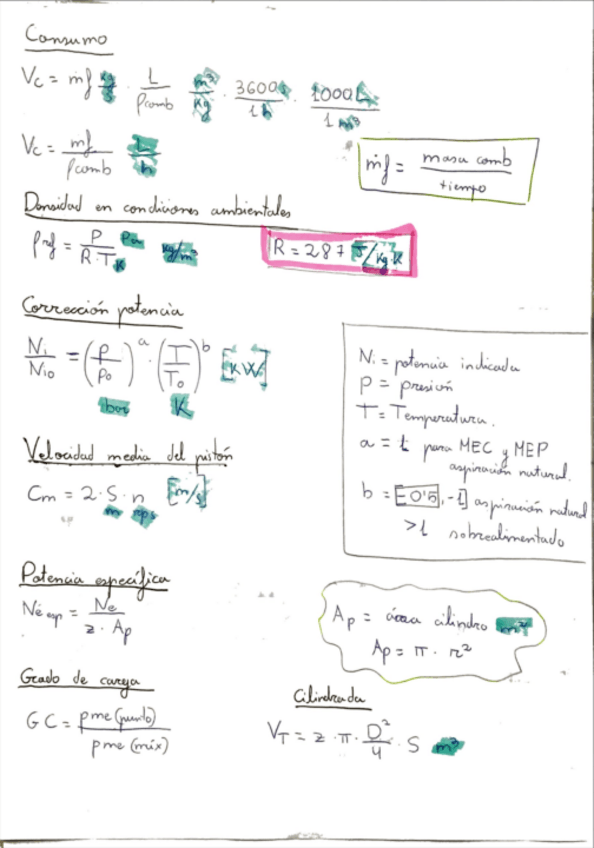 Consumo
Vc = ṁf kg/s · 1/ρcomb m³/kg · 3600s/1h · 1000L/1m³
Vc = ṁf/ρcomb L/h
ṁf = masa comb/tiempo
Densidad en condiciones ambientales
ρref = P/(R·T) Pa K kg/m³
R = 287 J/kg·K
Corrección potencia
Ni/Nio = (P/Po)^a · (T/To)^b [kW]
bar K
Ni = potencia indicada
P = presión
T = Temperatura.
a = 1 para MEC y MEP
aspiración natural.
b = [-0'5, -1] aspiración natural
>1 sobrealimentado
Velocidad media del pistón
Cm = 2·S·n [m/s]
m rps
Potencia específica
Ne esp = Ne/(z·Ap)
Ap = área cilindro m²
Ap = π · r²
Grado de carga
GC = pme(punto)/pme(máx)
Cilindrada
VT = z · π · D²/4 · S m³